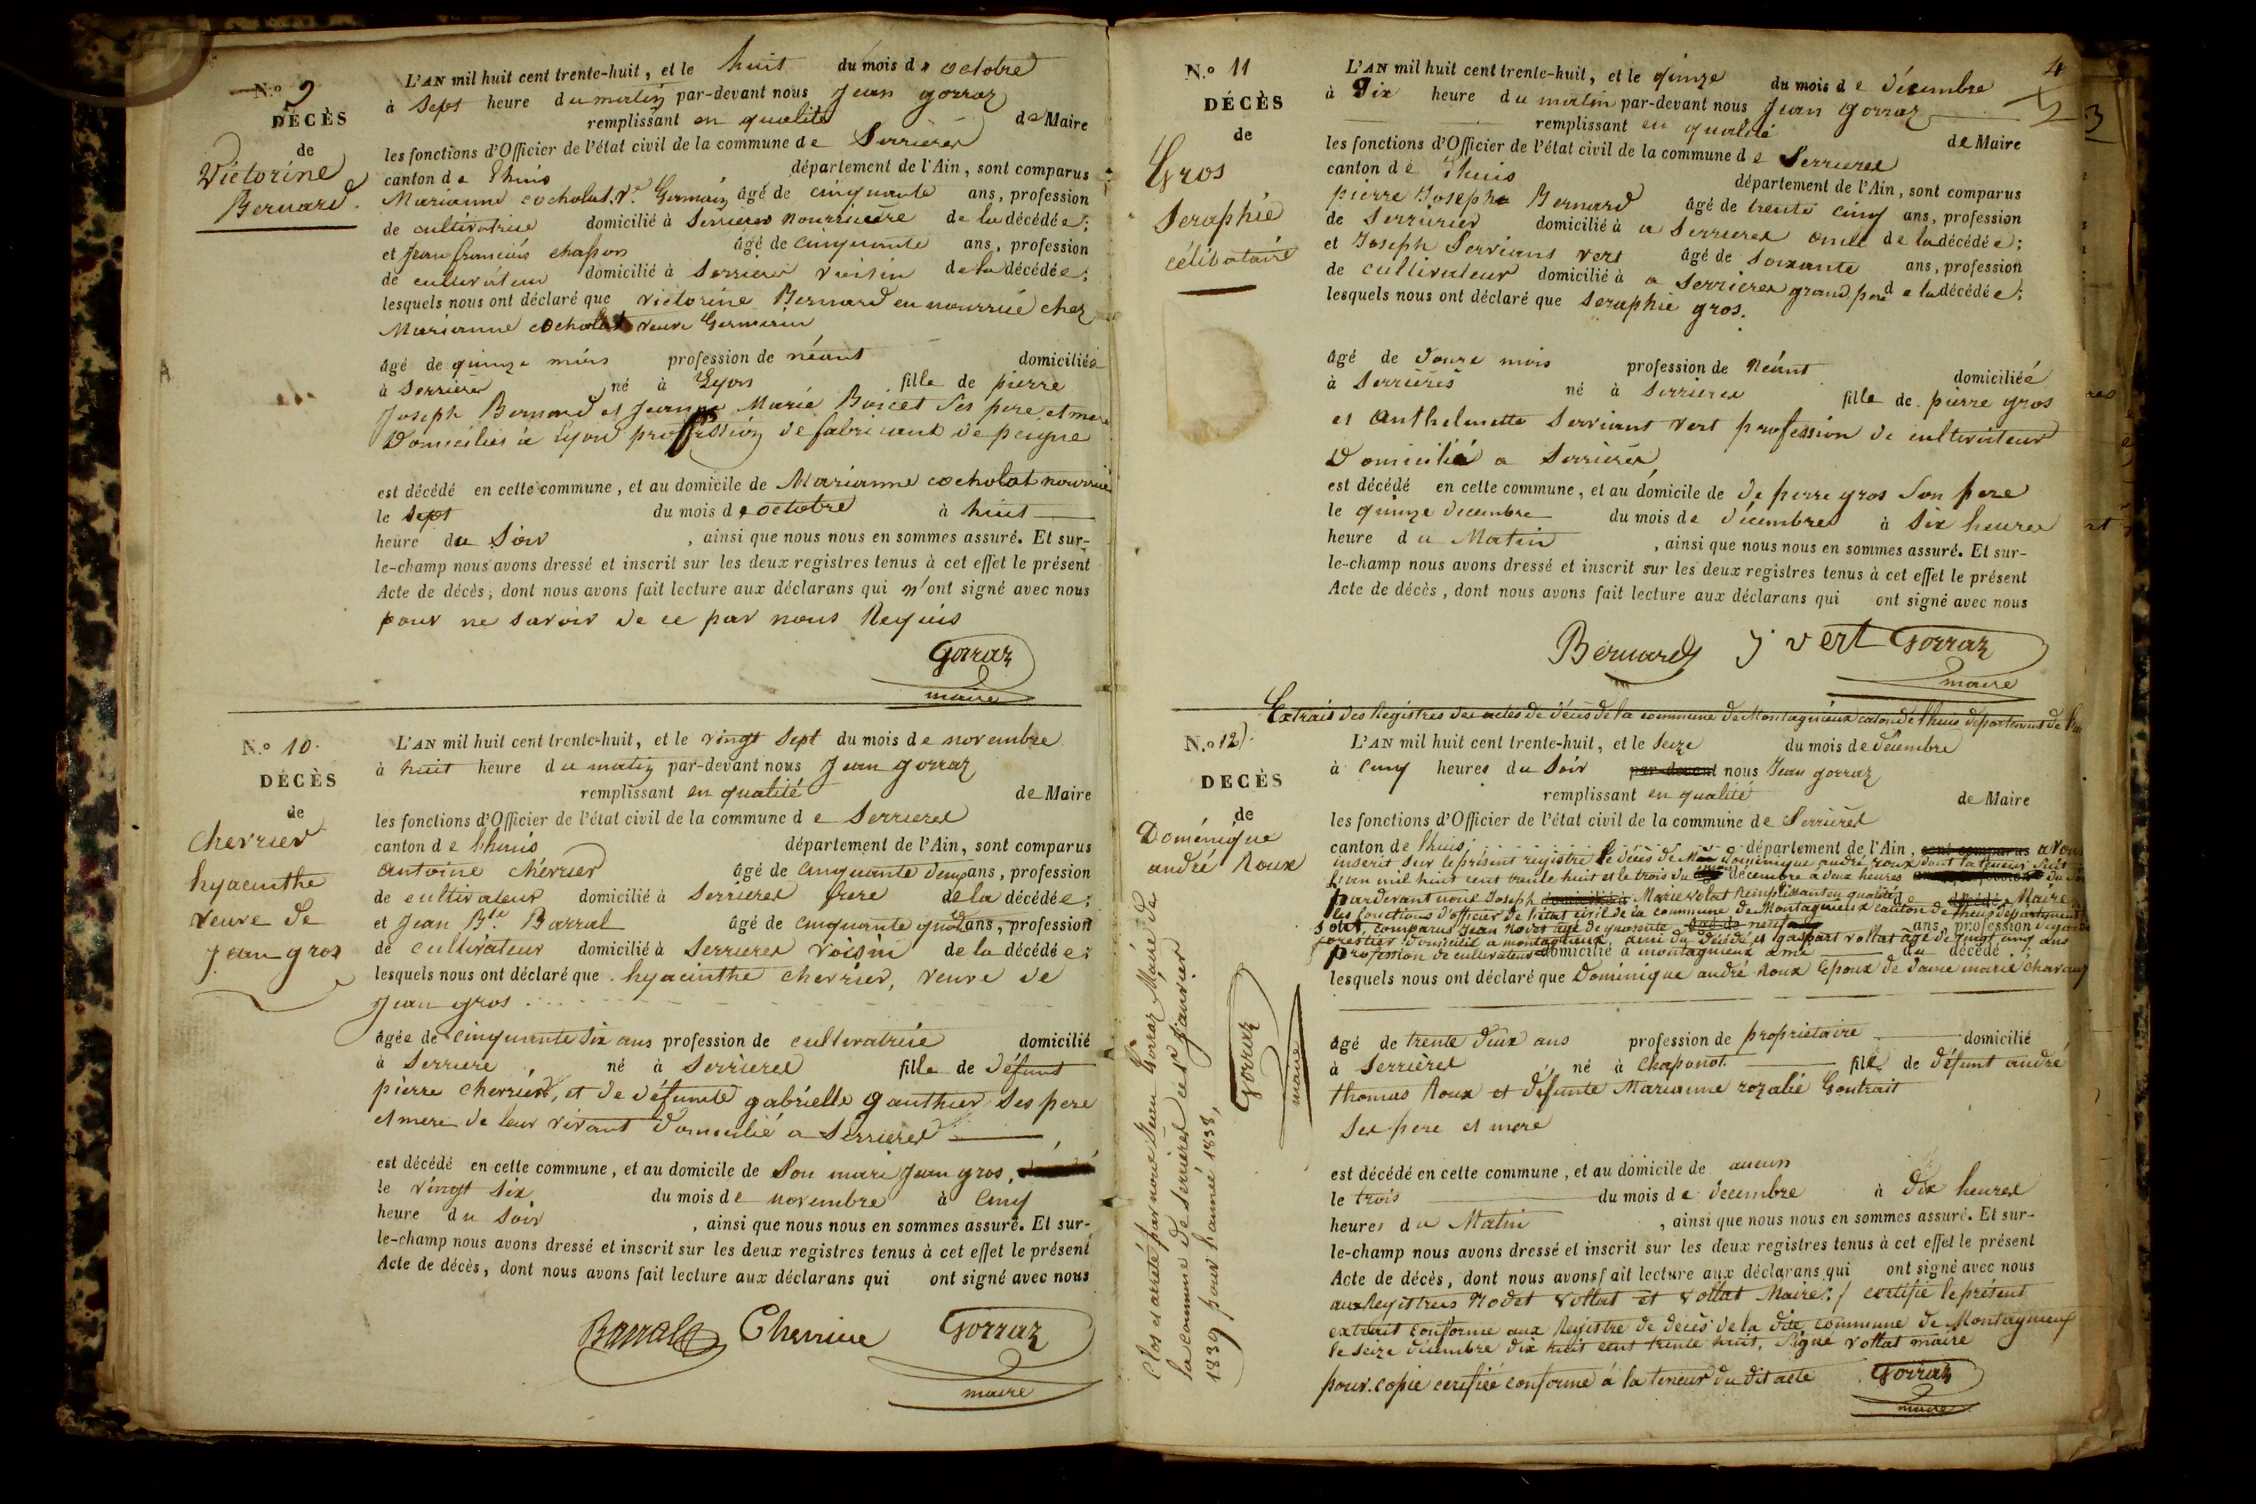 N.° 9
DÉCÈS
de
Victorine
Bernard.
L'AN mil huit cent trente-huit, et le huit du mois d'octobre
à sept heure du matin par-devant nous Jean Gorraz
remplissant en qualité de Maire
les fonctions d'Officier de l'état civil de la commune de Serrieres
canton de Lhuis département de l'Ain, sont comparus
Marianne cocholat Ve. Germain âgé de cinquante ans, profession
de cultivatrice domicilié à Serrieres nourriciere de la décédée;
et Jean françois chapon âgé de cinquante ans, profession
de cultivateur domicilié à Serrieres voisin de la décédée;
lesquels nous ont déclaré que victorine Bernard en nourrice chez
Marianne cocholat veuve Germain
âgé de quinze mois profession de néant domiciliée
à Serrieres né à Lyon fille de pierre
Joseph Bernard et Jeanne Marie Boicet ses pere et mere
Domiciliés à Lyon profession de fabricant de peigne
est décédé en cette commune, et au domicile de Marianne cocholat nourrice
le sept du mois d'octobre à huit
heure du Soir, ainsi que nous nous en sommes assuré. Et sur-
le-champ nous avons dressé et inscrit sur les deux registres tenus à cet effet le présent
Acte de décès, dont nous avons fait lecture aux déclarans qui n'ont signé avec nous
pour ne savoir de ce par nous Requis
Gorraz
maire
N.° 10.
DÉCÈS
de
cherrier
hyacinthe
veuve de
Jean gros
L'AN mil huit cent trente-huit, et le vingt sept du mois de novembre
à huit heure du matin par-devant nous Jean gorraz
remplissant en qualité de Maire
les fonctions d'Officier de l'état civil de la commune de Serrieres
canton de Lhuis département de l'Ain, sont comparus
antoine cherrier âgé de cinquante deux ans, profession
de cultivateur domicilié à Serrieres frere de la décédée;
et Jean Bte Barral âgé de cinquante quatre ans, profession
de cultivateur domicilié à Serrieres voisin de la décédée;
lesquels nous ont déclaré que hyacinthe cherrier, veuve de
Jean gros
âgée de cinquante six ans profession de cultivatrice domicilié
à Serriere né à Serrieres fille de défunt
pierre cherrier, et de défunte gabrielle gauthier ses pere
et mere de leur vivant Domicilié a Serrieres
est décédé en cette commune, et au domicile de Son mari Jean gros,
le vingt six du mois de novembre à cinq
heure du Soir, ainsi que nous nous en sommes assuré. Et sur-
le-champ nous avons dressé et inscrit sur les deux registres tenus à cet effet le présent
Acte de décès, dont nous avons fait lecture aux déclarans qui ont signé avec nous
Barral Cherrier Gorraz
maire
4
3
N.° 11
DÉCÈS
de
Gros
Seraphie
célibataire
L'AN mil huit cent trente-huit, et le quinze du mois de décembre
à Dix heure du matin par-devant nous Jean Gorraz
remplissant en qualité de Maire
les fonctions d'Officier de l'état civil de la commune de Serrieres
canton de Lhuis département de l'Ain, sont comparus
pierre Joseph Bernard âgé de trente cinq ans, profession
de Serrurier domicilié à a Serrieres oncle de la décédée;
et Joseph Servians vert âgé de soixante ans, profession
de cultivateur domicilié à a Serrieres grand pere de la décédée;
lesquels nous ont déclaré que Seraphie gros.
âgé de douze mois profession de Néant domiciliée
à Serrieres né à Serrieres fille de pierre gros
et anthelmette Serviant vert profession de cultivateur
Domicilié a Serrieres
est décédé en cette commune, et au domicile de de pierre gros Son pere
le quinze decembre du mois de décembre à Six heures
heure du Matin, ainsi que nous nous en sommes assuré. Et sur-
le-champ nous avons dressé et inscrit sur les deux registres tenus à cet effet le présent
Acte de décès, dont nous avons fait lecture aux déclarans qui ont signé avec nous
Bernard J vert Gorraz
maire
Extrais des Registres des actes de décès de la commune de Montagnieux caton de Lhuis département de l'ain
N.° 12
DECÈS
de
Doménique
andré Roux
L'AN mil huit cent trente-huit, et le seize du mois de décembre
à cinq heures du Soir par-devant nous Jean gorraz
remplissant en qualité de Maire
les fonctions d'Officier de l'état civil de la commune de Serrieres
canton de Lhuis, département de l'Ain, sont comparus avons
inscrit sur le présent registre le décès de Dominique andré roux dont la teneur suit
L'an mil huit cent trente huit et le trois du décembre a deux heures du soir
pardevant nous Joseph Marie volat Remplissant en qualité de Maire
les fonctions d'officier de l'état civil de la commune de Montagnieux canton de Lheuis département
comparus Jean Nodet agé de quarante ans, profession de garde
forestier domicilié a montagnieux, ami du décédé et gaspart vollat age de vingt cinq ans
profession de cultivateur domicilié à montagnieux ami du décédé
lesquels nous ont déclaré que Dominique andré Roux Epoux de dame marie
âgé de trente deux ans profession de propriétaire domicilié
à Serrieres né à Chaponot fils de défunt andré
thomas Roux et défunte Marianne rozalie Goutrait
ses pere et mere
est décédé en cette commune, et au domicile de aucun
le trois du mois de décembre à dix heures
heures du Matin, ainsi que nous nous en sommes assuré. Et sur-
le-champ nous avons dressé et inscrit sur les deux registres tenus à cet effet le présent
Acte de décès, dont nous avons fait lecture aux déclarans qui ont signé avec nous
aux Registres Nodet vollat et vollat Maire: / certifie le présent
extrait conforme aux Registre de decès de la dite commune de Montagnieux
le seize décembre dix huit cent trente huit, Signé vollat maire
pour copie cerifiée conforme á la teneur du dit acte Gorraz
maire
Clos et arrêté par nous Jean Gorraz Maire de
la commune de Serrieres ce 1er Janvier
1839 pour l'année 1838,
Gorraz
maire